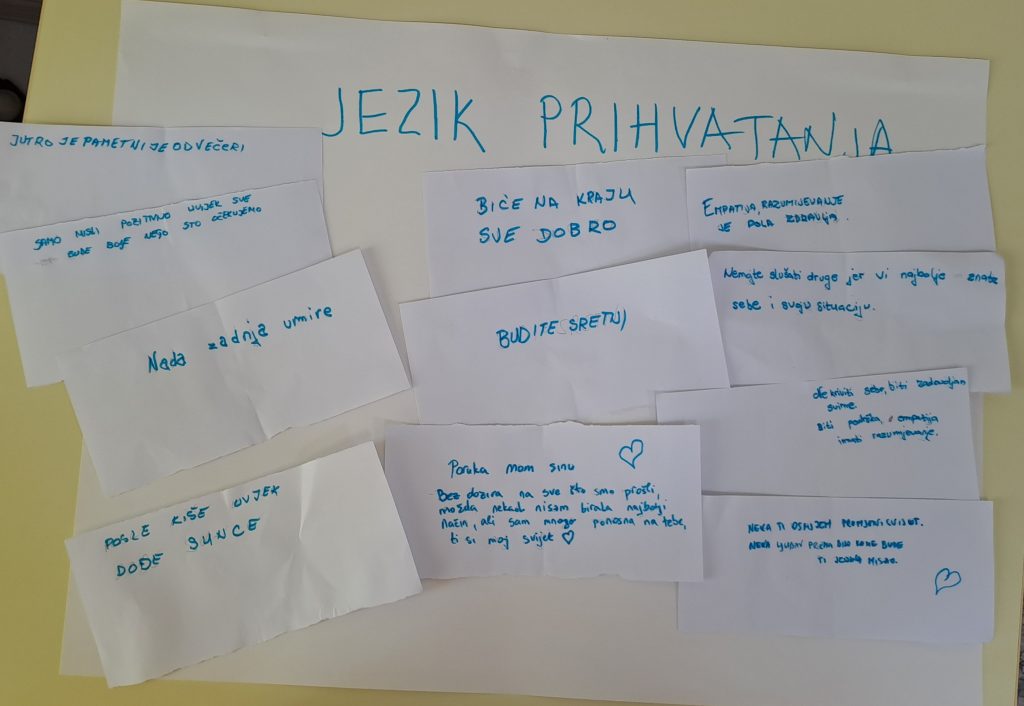 JEZIK PRIHVATANJA
JUTRO JE PAMETNIJE OD VEČERI
SAMO MISLI POZITIVNO UVIJEK SVE
BUDE BOLJE NEGO ŠTO OČEKUJEMO
Nada zadnja umire
POSLE KIŠE UVJEK
DOĐE SUNCE
BIĆE NA KRAJU
SVE DOBRO
BUDITE SRETNI
Poruka mom sinu
Bez dozira na sve što smo prošli,
možda nekad nisam birala najbolji
način, ali sam mnogo ponosna na tebe,
ti si moj svijet
EMPATIJA, RAZUMIJEVANJE
JE POLA ZDRAVLJA.
Nemojte slušati druge jer vi najbolje znate
sebe i svoju situaciju.
Ne kriviti sebe, biti zadovoljan
svime.
Biti podrška, empatija
imati razumjevanje.
NEKA TI OSMIJEH PROMJENI SVIJET.
NEKA LJUBAV PREMA BILO KOME BUDE
TI JEDINA MISAO.